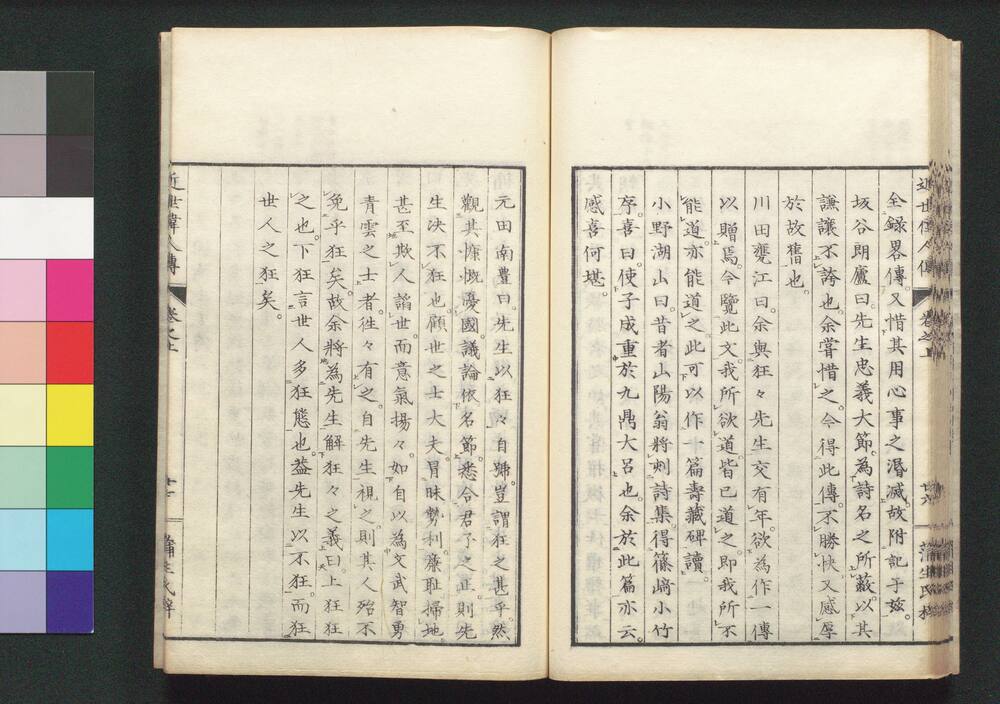 全録畧傳。又惜其用心事之湮滅。故附記于玆。
坂谷朗廬曰。先生忠義大節。為詩名之所蔽。以其
謙讓不誇也。余嘗惜之。今得此傳。不勝快。又感厚
於故舊也。
川田甕江曰。余與狂々先生交有年。欲為作一傳
以贈焉。今覽此文。我所欲道。皆已道之。即我所不
能道。亦能道之。此可以作一篇壽藏碑讀。
小野湖山曰。昔者山陽翁將刻詩集。得篠﨑小竹
序。喜曰。使子成重於九鼎大呂也。余於此篇亦云。
感喜何堪。
近世偉人傳
卷之上
廿六
蒲生氏梓
元田南豊曰。先生以狂々自號。豈謂狂之甚乎。然
觀其慷慨憂國。議論依名節。悉合君子之正。則先
生决不狂也。顧世之士大夫。冐昧勢利。廉耻掃地。
甚至欺人謟世。而意氣揚々。如自以為文武智勇
青雲之士者。徃々有之。自先生視之。則其人殆不
免乎狂矣。故余將為先生解狂々之義曰。上狂狂
之也。下狂言世人多狂態也。葢先生以不狂。而狂
世人之狂矣。
近世偉人傳
卷之上
蒲生氏梓